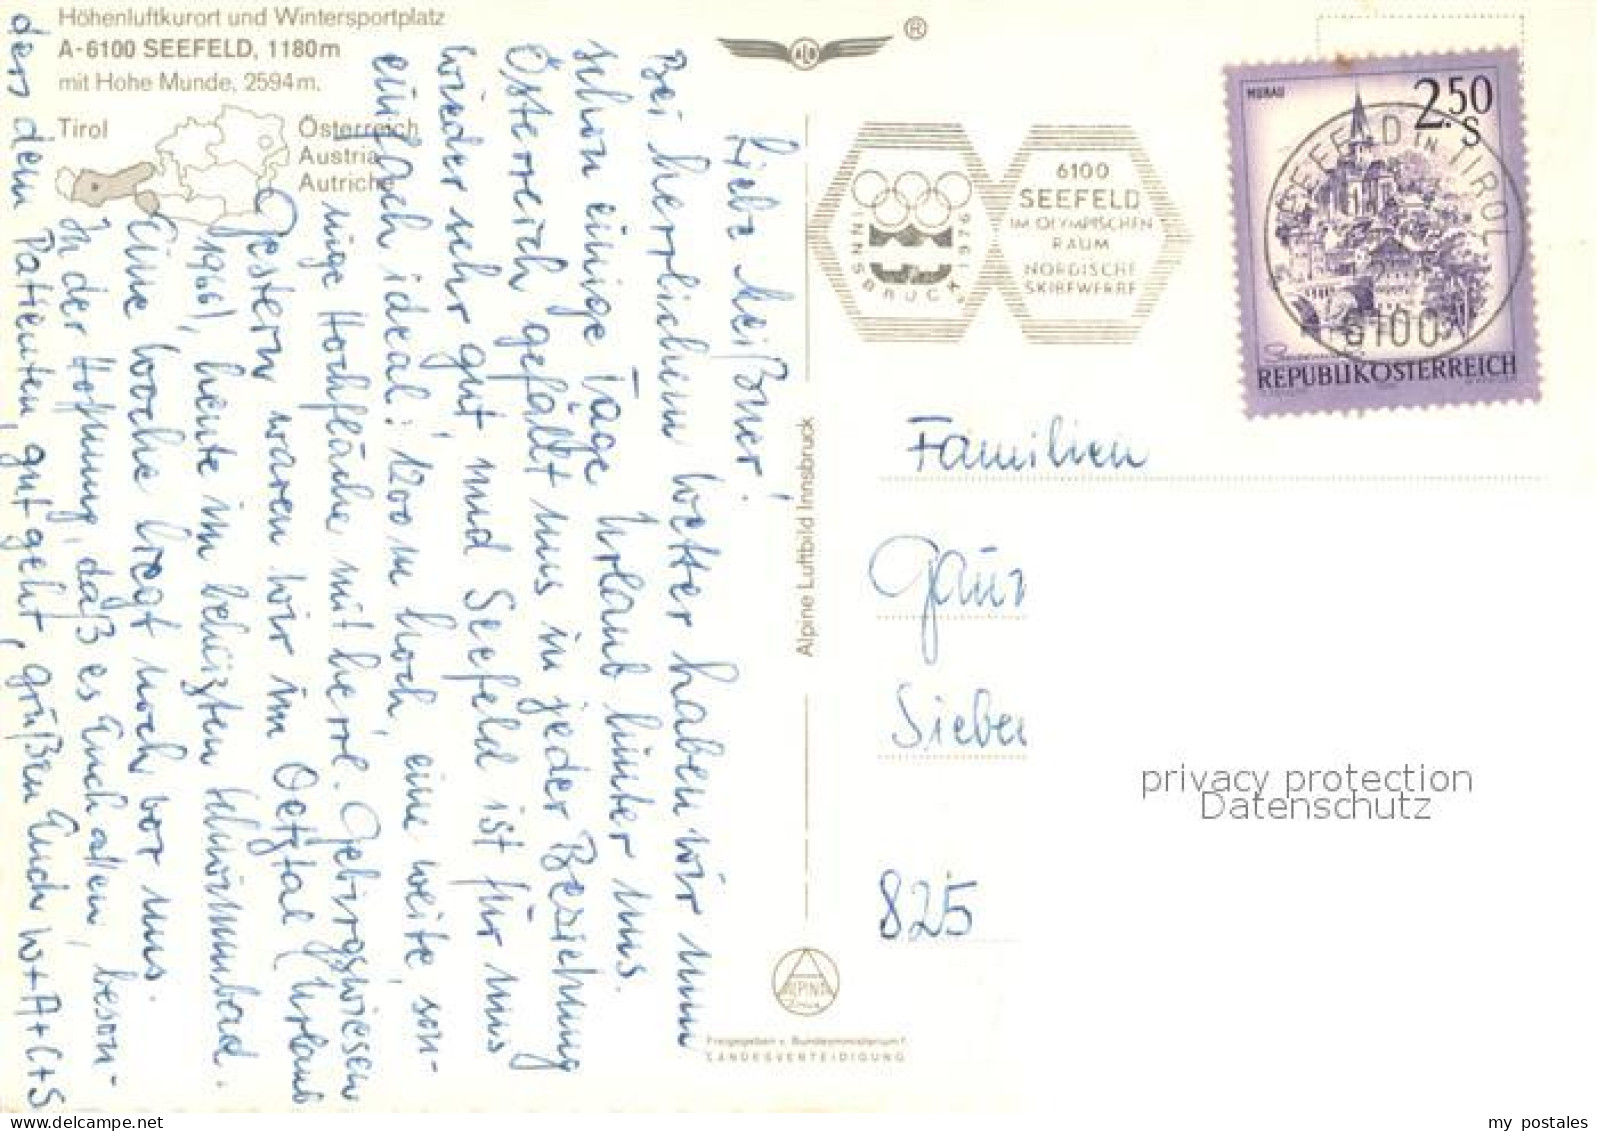 Höhenluftkurort und Wintersportplatz
A-6100 SEEFELD, 1180m
mit Hohe Munde, 2594m.
Tirol
Österreich
Austria
Autriche
Liebe Meißner!
Bei herrlichem Wetter haben wir nun
schon einige Tage Urlaub hinter uns.
Österreich gefällt uns in jeder Beziehung
wieder sehr gut und Seefeld ist für uns
einfach ideal: 1200 m hoch, eine weite, son-
nige Hochfläche mit herrl. Gebirgswiesen
Gestern waren wir im Oetztal (Urlaub
1966), heute im beheizten Schwimmbad.
Eine Woche liegt noch vor uns.
In der Hoffnung, daß es Euch allen, beson-
ders dem Patienten, gut geht, grüßen Euch W+A+C+S
Alpine Luftbild Innsbruck
ALPINA
Freigegeben v. Bundesministerium f.
LANDESVERTEIDIGUNG
ALB
®
INNSBRUCK 1976
6100
SEEFELD
IM OLYMPISCHEN
RAUM
NORDISCHE
SKIBEWERBE
MURAU
2.50
S
SEEFELD IN TIROL
6100
REPUBLIK ÖSTERREICH
Familien
825
privacy protection
Datenschutz
my postales